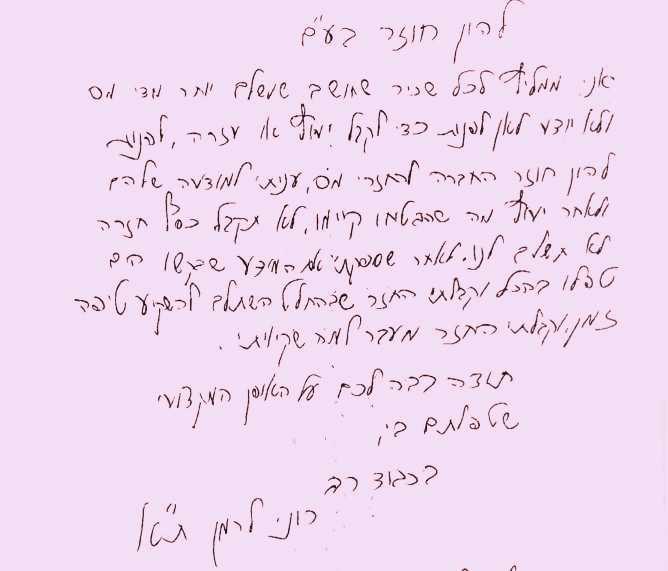 להון חוזר בע"מ
אני ממליץ לכל שכיר שחושב שמשלם יותר מדי מס
ולא יודע לאן לפנות כדי לקבל יעוץ או עזרה, לפנות
להון חוזר החברה להחזרי מס, עניתי למודעה שלהם
ולאחר יעוץ מה שהבטיחו קיימו, לא תקבל כסף חזרה
לא תשלם לנו. לאחר שסיפקתי את המידע שביקשו הם
טיפלו בהכל וקבלתי החזר שבהחלט השתלם להשקיע טיפה
זמן, וקבלתי החזר מעבר למה שקיויתי.
תודה רבה לכם על האופן המקצועי
שטפלתם בי,
בכבוד רב
רוני לרמן ת"א